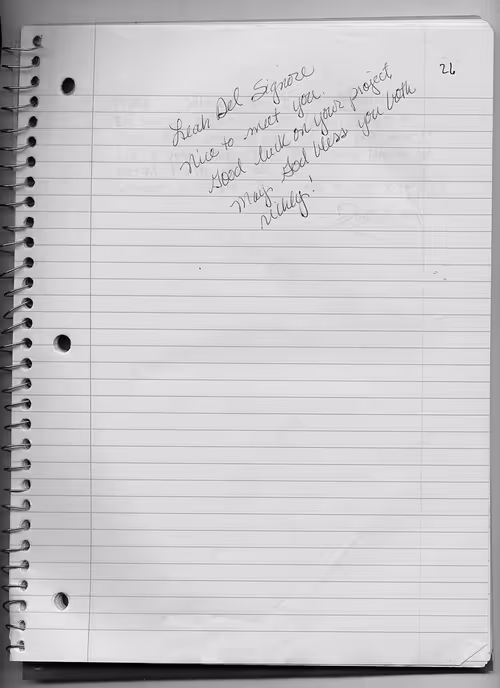 26
Leah Del Signore
Nice to meet you.
Good luck on your project
May God bless you both
richly!